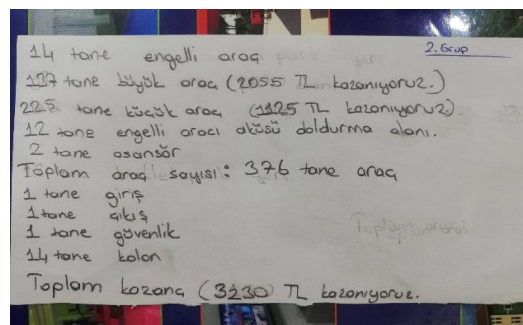 2. Grup
14 tane engelli aracı
137 tane büyük araç (2055 TL kazanıyoruz.)
225 tane küçük araç (1125 TL kazanıyoruz)
12 tane engelli aracı aküsü doldurma alanı.
2 tane asansör
Toplam araç sayısı: 376 tane araç
1 tane giriş
1 tane çıkış
1 tane güvenlik
14 tane kolon
Toplam kazanç (3230 TL kazanıyoruz.